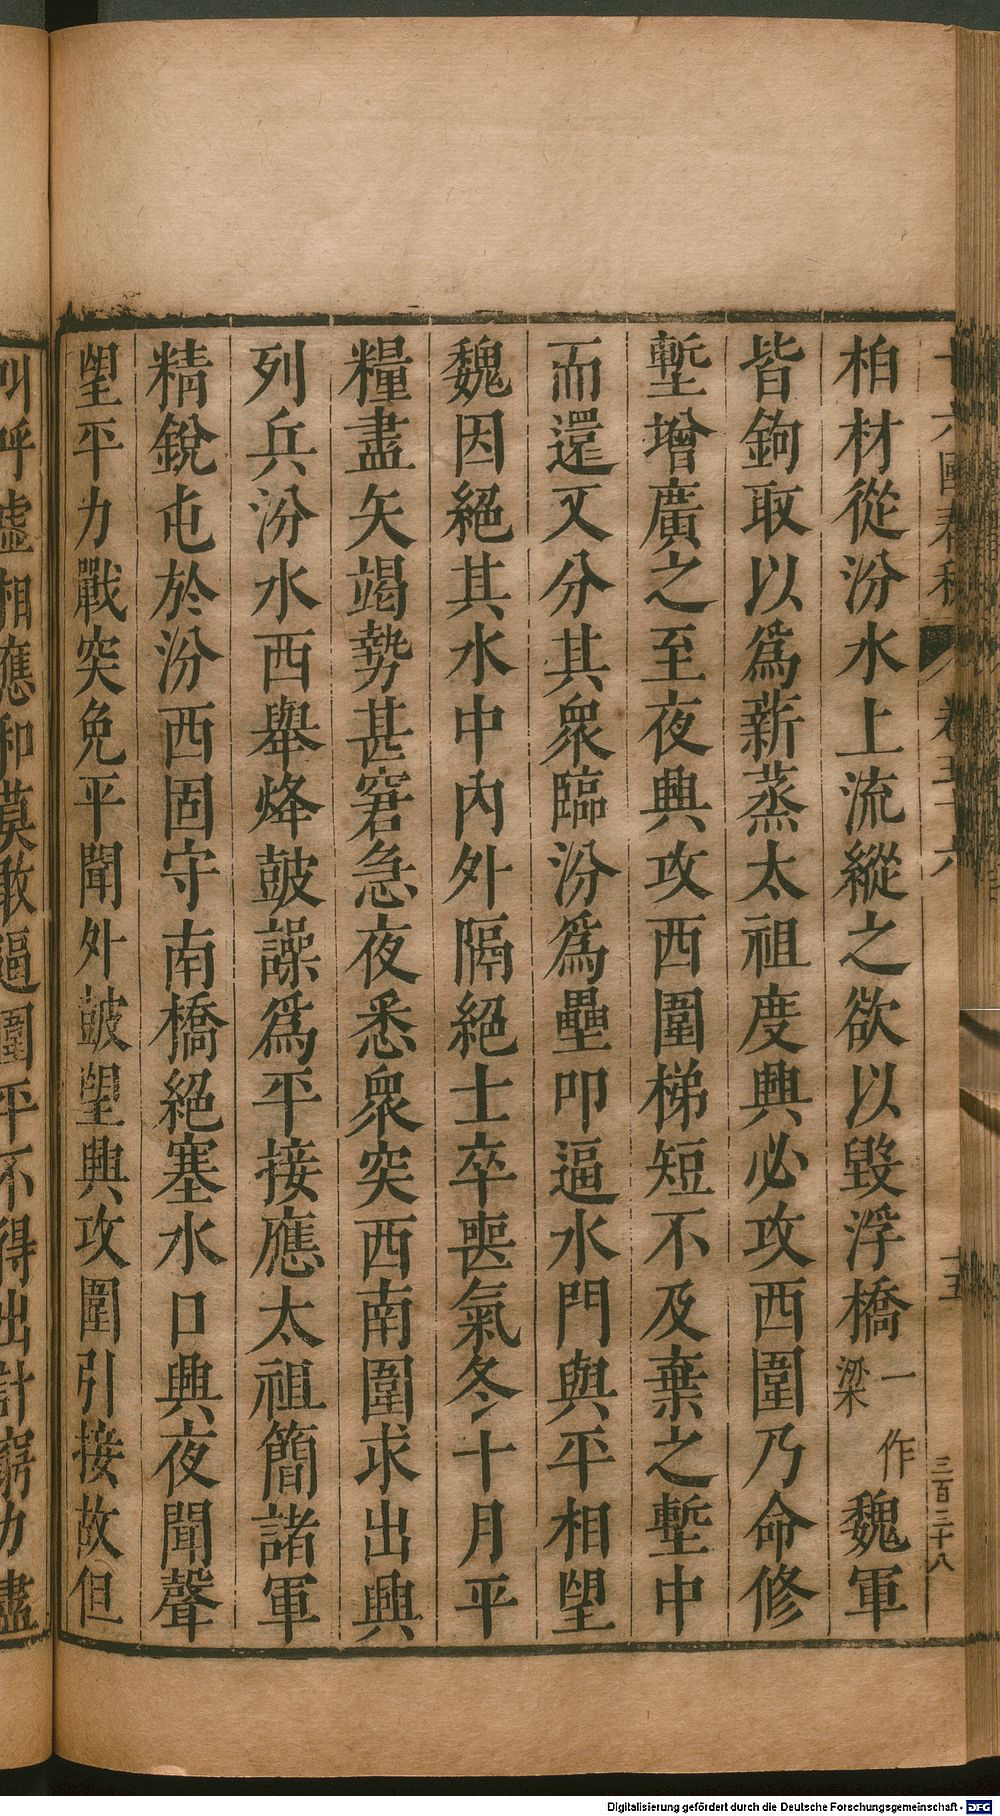 十六國春秋 卷五十六 十五 三百三十八
柏材從汾水上流縱之欲以毀浮橋一作梁魏軍
皆鉤取以爲薪蒸太祖度興必攻西圍乃命修
塹增廣之至夜興攻西圍梯短不及棄之塹中
而還又分其衆臨汾爲壘叩逼水門與平相望
魏因絕其水中內外隔絕士卒喪氣冬十月平
糧盡矢竭勢甚窘急夜悉衆突西南圍求出興
列兵汾水西舉烽鼓譟爲平接應太祖簡諸軍
精銳屯於汾西固守南橋絕塞水口興夜聞聲
望平力戰突免平聞外鼓望興攻圍引接故但
叫呼虛相應和莫敢逼圍平不得出計窮力盡
Digitalisierung gefördert durch die Deutsche Forschungsgemeinschaft - DFG